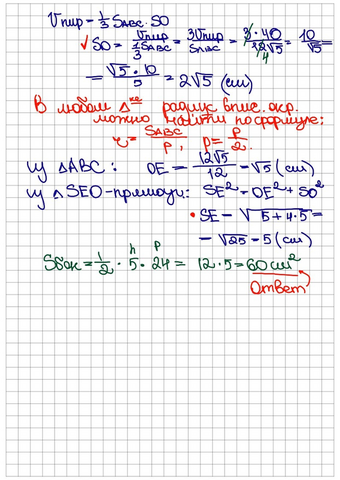 Vпир = 1/3 SABC · SO
√ SO = Vпир / (1/3 SABC) = 3Vпир / SABC = 3 · 40 / 12√5 = 10 / √5 =
4
= √5 · 10 / 5 = 2√5 (см)
В любом Δке радиус впис. окр.
можно найти по формуле:
r = SABC / p, p = P / 2.
из ΔABC: OE = 12√5 / 12 = √5 (см)
из ΔSEO-прямоуг: SE² = OE² + SO²
• SE = √5 + 4·5 =
= √25 = 5 (см)
h P
Sбок = 1/2 · 5 · 24 = 12 · 5 = 60 см²
Ответ